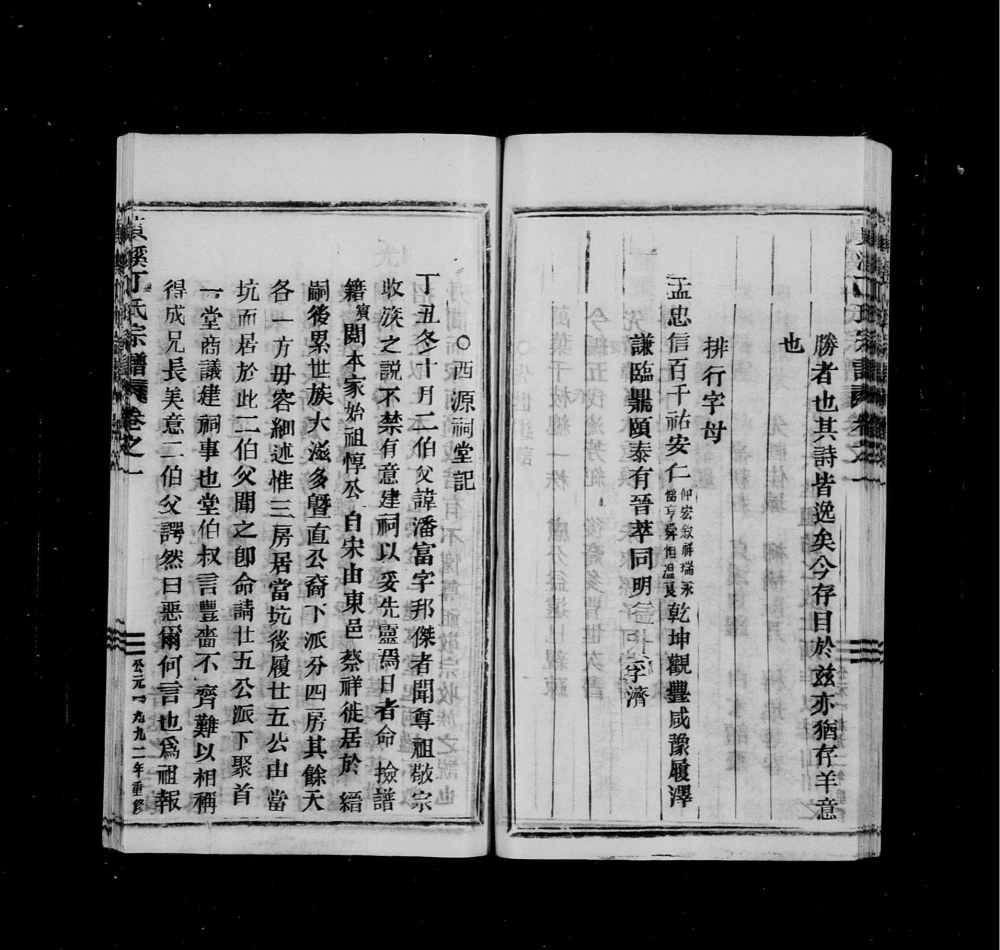 勝者也其詩皆逸矣今存目於兹亦猶存羊意
也
排行字母
孟忠信百千祐安仁 仲宏敘祥瑞永 儒亨舜恒溫良 乾坤觀豐咸豫履澤
謙臨鼎頤泰有晉萃同明 字濟
○西源祠堂記
丁丑冬十月二伯父諱潘富字邦傑者聞尊祖敬宗
收族之說不禁有意建祠以妥先靈焉日者命撿譜
籍實閱本家始祖惇公自宋由東邑蔡祥徙居於縉
嗣後累世族大滋多曁直公裔下派分四房其餘天
各一方毋容細述惟三房居當坑後履廿五公由當
坑而居於此二伯父聞之卽命請廿五公派下聚首
一堂商議建祠事也堂伯叔言豐嗇不齊難以相稱
得成兄長美意二伯父諤然曰惡爾何言也爲祖報
溪丁氏宗譜 卷之一
公元一九九二年重修